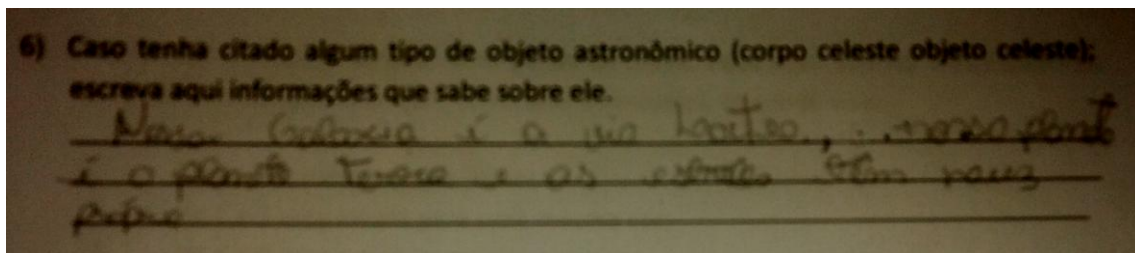 6) Caso tenha citado algum tipo de objeto astronômico (corpo celeste objeto celeste);
escreva aqui informações que sabe sobre ele.
Nossa Galaxia é a via Lactea, nosso planeta
é o planeta Terra e as estrelas têm